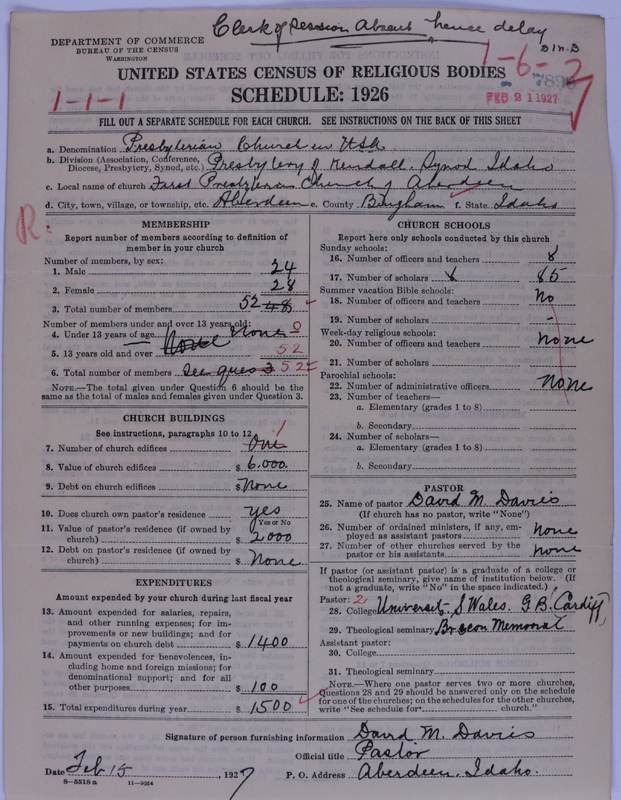 Clerk of Session Absent hence delay
DEPARTMENT OF COMMERCE
BUREAU OF THE CENSUS
WASHINGTON
1-6-2
FEB 21 1927
UNITED STATES CENSUS OF RELIGIOUS BODIES
1-1-1
SCHEDULE: 1926
FILL OUT A SEPARATE SCHEDULE FOR EACH CHURCH. SEE INSTRUCTIONS ON THE BACK OF THIS SHEET
a. Denomination Presbyterian Church in USA
b. Division (Association, Conference, Diocese, Presbytery, Synod, etc.) Presbytery of Kendall, Synod Idaho
c. Local name of church First Presbyterian Church of Aberdeen
d. City, town, village, or township, etc. Aberdeen e. County Bingham f. State Idaho
R.
MEMBERSHIP
Report number of members according to definition of
member in your church
Number of members, by sex:
1. Male 24
2. Female 28
3. Total number of members 52 48
Number of members under and over 13 years old:
4. Under 13 years of age None 0
5. 13 years old and over None 52
6. Total number of members See ques 3 52
NOTE.—The total given under Question 6 should be the
same as the total of males and females given under Question 3.
CHURCH BUILDINGS
See instructions, paragraphs 10 to 12
7. Number of church edifices One 1
8. Value of church edifices $ 6.000
9. Debt on church edifices $ None
10. Does church own pastor's residence yes
Yes or No
11. Value of pastor's residence (if owned by
church) $ 2000
12. Debt on pastor's residence (if owned by
church) $ None
EXPENDITURES
Amount expended by your church during last fiscal year
13. Amount expended for salaries, repairs,
and other running expenses; for im-
provements or new buildings; and for
payments on church debt $ 1400
14. Amount expended for benevolences, in-
cluding home and foreign missions; for
denominational support; and for all
other purposes $ 100
15. Total expenditures during year $ 1500
CHURCH SCHOOLS
Report here only schools conducted by this church
Sunday schools:
16. Number of officers and teachers 8
17. Number of scholars 85
Summer vacation Bible schools:
18. Number of officers and teachers No
19. Number of scholars -
Week-day religious schools:
20. Number of officers and teachers None
21. Number of scholars
Parochial schools:
22. Number of administrative officers None
23. Number of teachers—
a. Elementary (grades 1 to 8)
b. Secondary
24. Number of scholars—
a. Elementary (grades 1 to 8)
b. Secondary
PASTOR
25. Name of pastor David M. Davies
(If church has no pastor, write "None")
26. Number of ordained ministers, if any, em-
ployed as assistant pastors None
27. Number of other churches served by the
pastor or his assistants None
If pastor (or assistant pastor) is a graduate of a college or
theological seminary, give name of institution below. (If
not a graduate, write "No" in the space indicated.)
Pastor: 2
28. College University S Wales. G.B. Cardiff
29. Theological seminary Brecon Memorial
Assistant pastor:
30. College
31. Theological seminary
NOTE.—Where one pastor serves two or more churches,
Questions 28 and 29 should be answered only on the schedule
for one of the churches; on the schedules for the other churches,
write "See schedule for church."
Signature of person furnishing information David M. Davies
Official title Pastor
Date Feb 15, 1927 P. O. Address Aberdeen, Idaho.
8—5518 a 11—9354